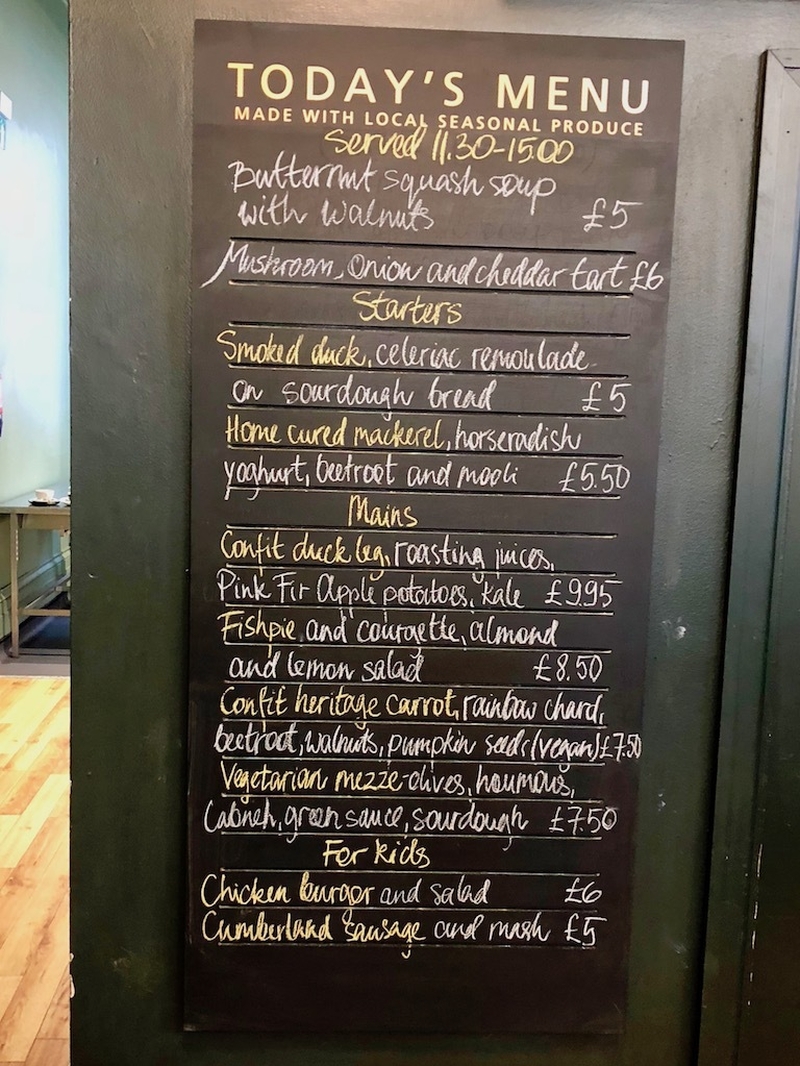 TODAY'S MENU
MADE WITH LOCAL SEASONAL PRODUCE
Served 11.30-15.00
Butternut squash soup
with walnuts £5
Mushroom, Onion and cheddar tart £6
Starters
Smoked duck, celeriac remoulade
on sourdough bread £5
Home cured mackerel, horseradish
yoghurt, beetroot and mooli £5.50
Mains
Confit duck leg, roasting juices,
Pink Fir Apple potatoes, kale £9.95
Fishpie and courgette, almond
and lemon salad £8.50
Confit heritage carrot, rainbow chard,
beetroot, walnuts, pumpkin seeds (vegan) £7.50
Vegetarian mezze-olives, houmous,
Labneh, green sauce, sourdough £7.50
For kids
Chicken burger and salad £6
Cumberland sausage and mash £5